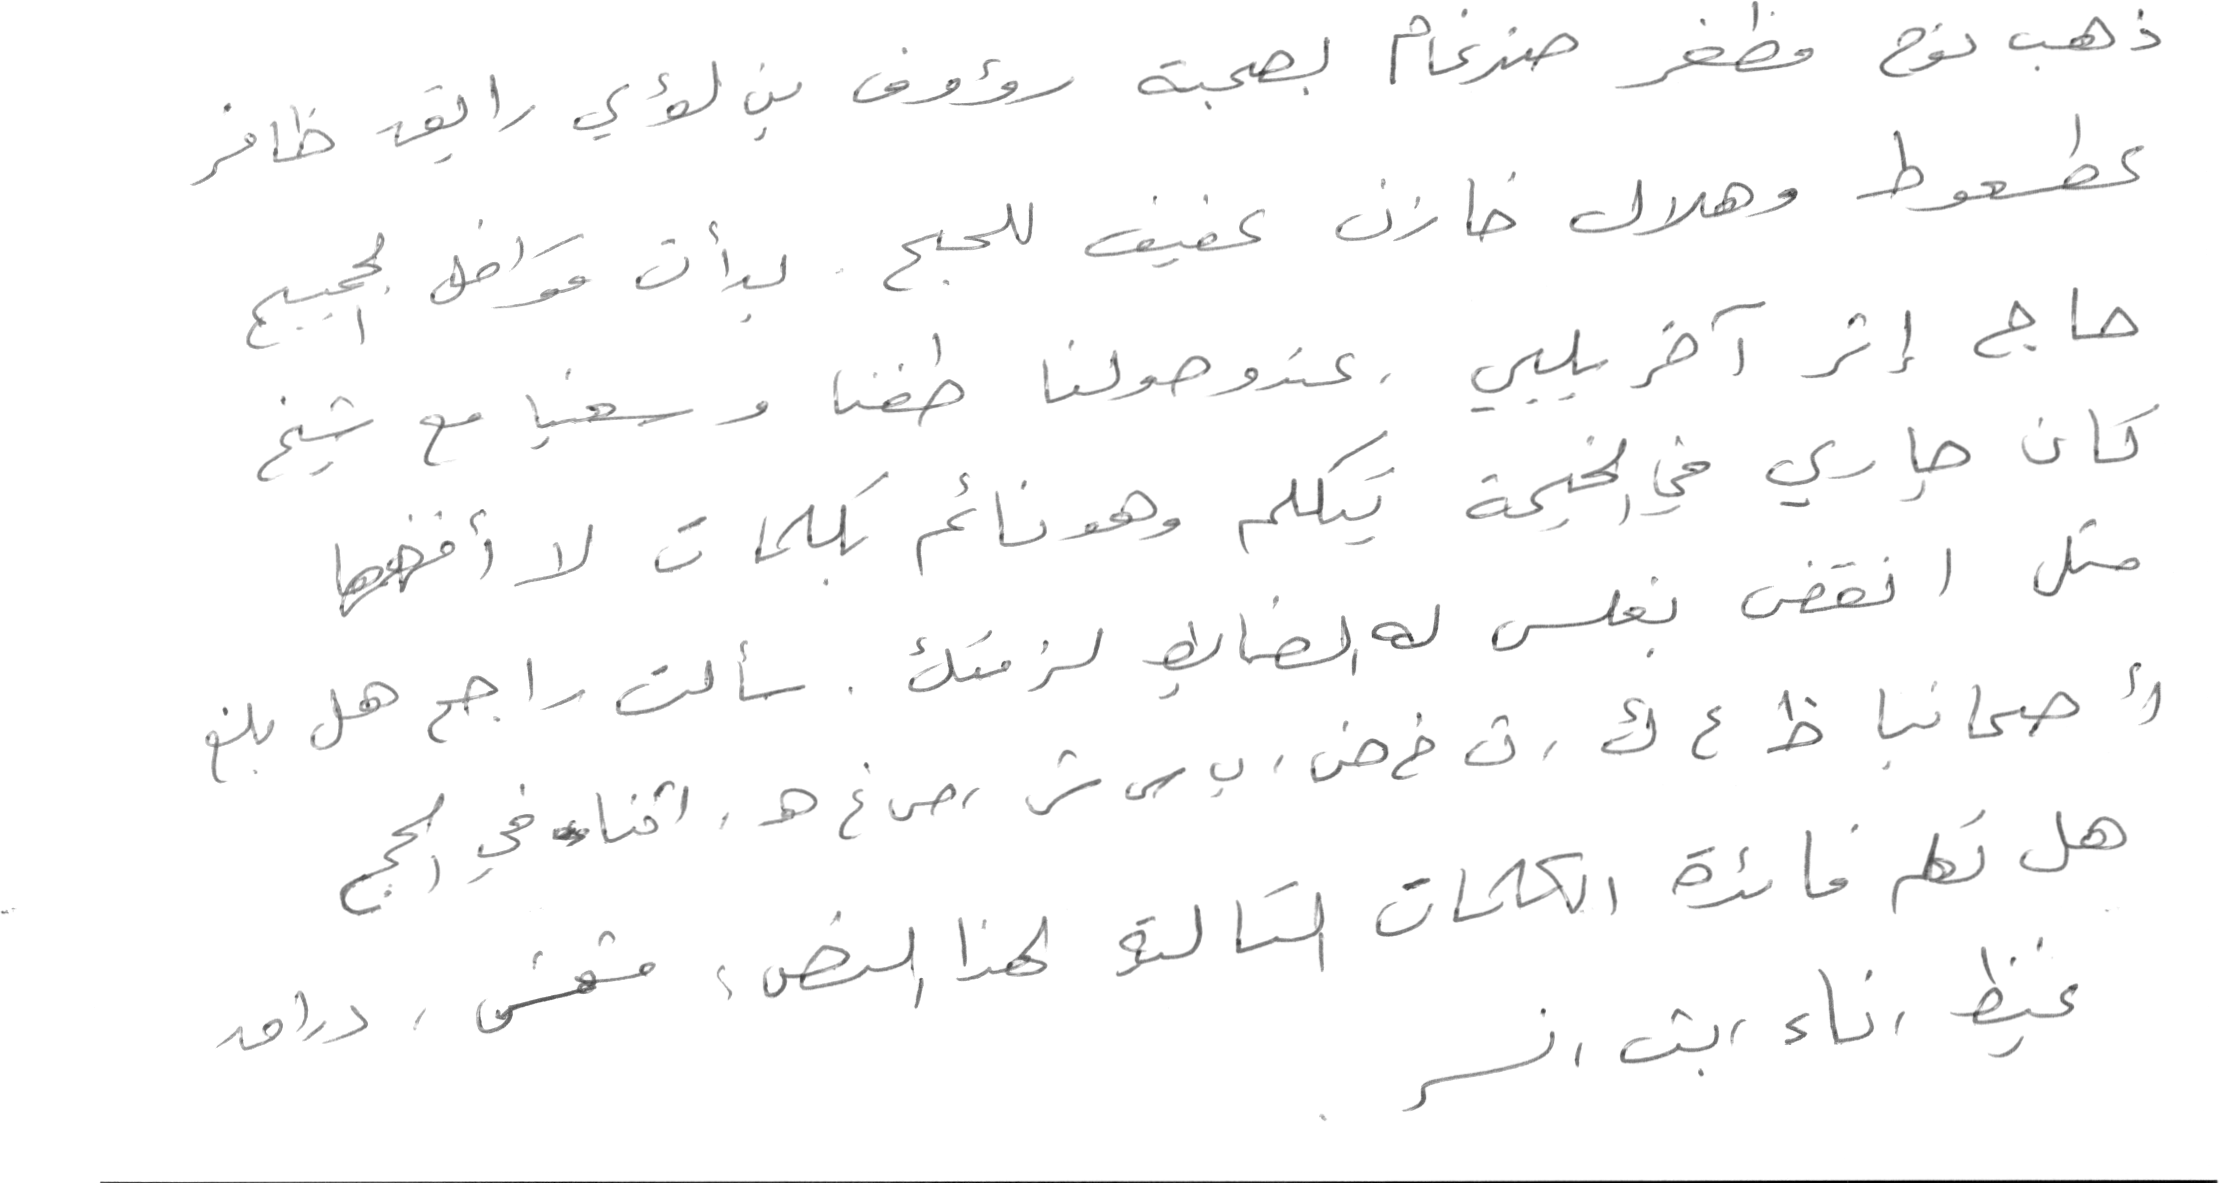 ذهب نوح مظفر ضرغام بصحبة رؤوف بن لؤي رايق ظافر
عطعوط وهلال خازن عفيف للحج . بدأت قوافل الحجيج
حاج إثر آخر يلبي ، عند وصولنا طفنا وسعينا مع شيخ
كان جاري في الخيمة يتكلم وهو نائم بكلمات لا أفهمها
مثل انقض بغلس له الضابط لزمتك . سألت راجح هل بلغ
لأصحابنا ظ ع ك ، ث خ ض ، ب س ش ، ص غ ه ، اثناء في الحج
هل تعلم فائدة الكلمات التالية لهذا النص ؛ مشمش ، دراق
غيظ ، ناء ، ابث ، نسر .